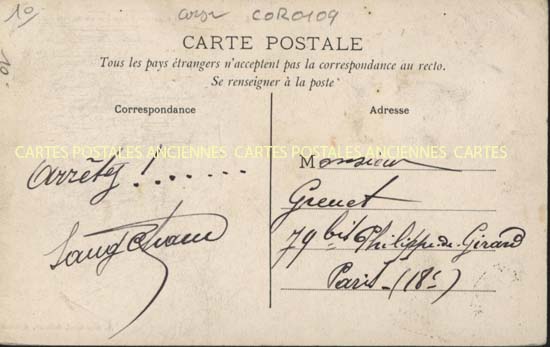 10
corse COR0109
CARTE POSTALE
Tous les pays étrangers n'acceptent pas la correspondance au recto.
Se renseigner à la poste
Correspondance
Adresse
CARTES POSTALES ANCIENNES CARTES POSTALES ANCIENNES CARTES POSTALES ANCIENNES
Arrêtez !.......
Monsieur
Grenet
79 bis Philippe-de-Girard
Paris-(18e)